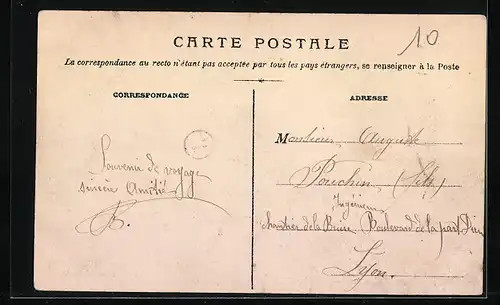 CARTE POSTALE
10
La correspondance au recto n'étant pas acceptée par tous les pays étrangers, se renseigner à la Poste
CORRESPONDANCE
Souvenir de voyage
sincère Amitié
B.
ADRESSE
Monsieur Auguste
Pouchin, (fils)
Ingénieur
chantier de la Buire Boulevard de la part Dieu
Lyon.